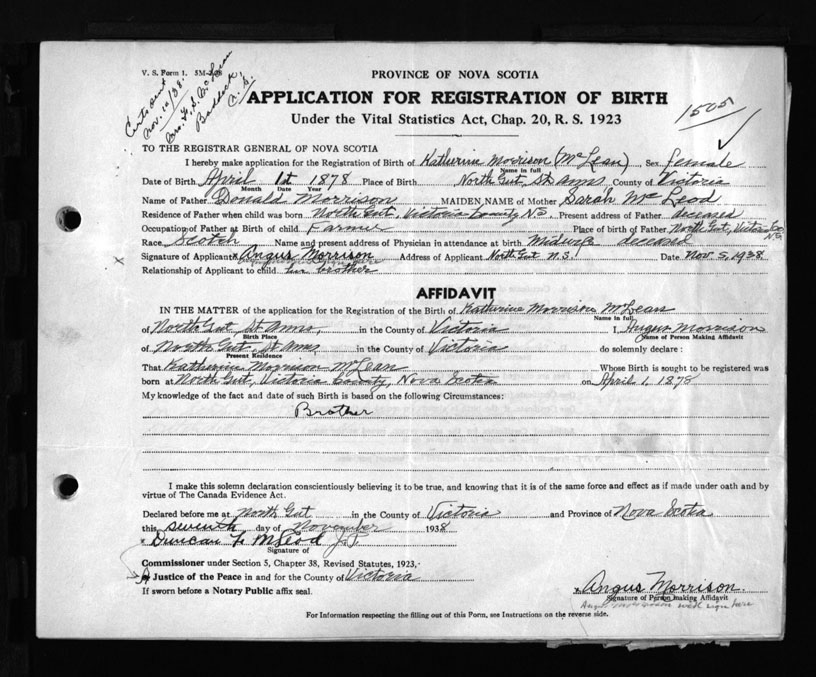 V. S. Form 1.
Cert sent
Nov. 10/38.
Baddeck,
PROVINCE OF NOVA SCOTIA
APPLICATION FOR REGISTRATION OF BIRTH
1505
Under the Vital Statistics Act, Chap. 20, R. S. 1923
TO THE REGISTRAR GENERAL OF NOVA SCOTIA
I hereby make application for the Registration of Birth of Katherine Morrison (McLean) Sex female
Name in full
Date of Birth April 1st 1878 Place of Birth North Gut, St Anns County of Victoria
Month Date Year
Name of Father Donald Morrison MAIDEN NAME of Mother Sarah McLeod
Residence of Father when child was born North Gut, Victoria County N.S. Present address of Father deceased
Occupation of Father at Birth of child Farmer Place of birth of Father North Gut, Victoria Co N.S
Race Scotch Name and present address of Physician in attendance at birth Midwife deceased
Signature of Applicant x Angus Morrison Address of Applicant North Gut N.S. Date Nov. 5, 1938
x
Relationship of Applicant to child her brother
AFFIDAVIT
IN THE MATTER of the application for the Registration of the Birth of Katherine Morrison McLean
Name in full
of North Gut St Anns, in the County of Victoria I, Angus Morrison
Birth Place Name of Person Making Affidavit
of North Gut, St Anns in the County of Victoria do solemnly declare :
Present Residence
That Katherine Morrison McLean Whose Birth is sought to be registered was
born at North Gut, Victoria County, Nova Scotia on April 1, 1878
My knowledge of the fact and date of such Birth is based on the following Circumstances:
Brother
I make this solemn declaration conscientiously believing it to be true, and knowing that it is of the same force and effect as if made under oath and by
virtue of The Canada Evidence Act.
Declared before me at North Gut in the County of Victoria and Province of Nova Scotia
this seventh day of November 1938
x Duncan F McLeod J.P.
Signature of
Commissioner under Section 5, Chapter 38, Revised Statutes, 1923,
A Justice of the Peace in and for the County of Victoria
If sworn before a Notary Public affix seal.
x Angus Morrison.
Signature of Person making Affidavit
Angus Morrison will sign here
For Information respecting the filling out of this Form, see Instructions on the reverse side.